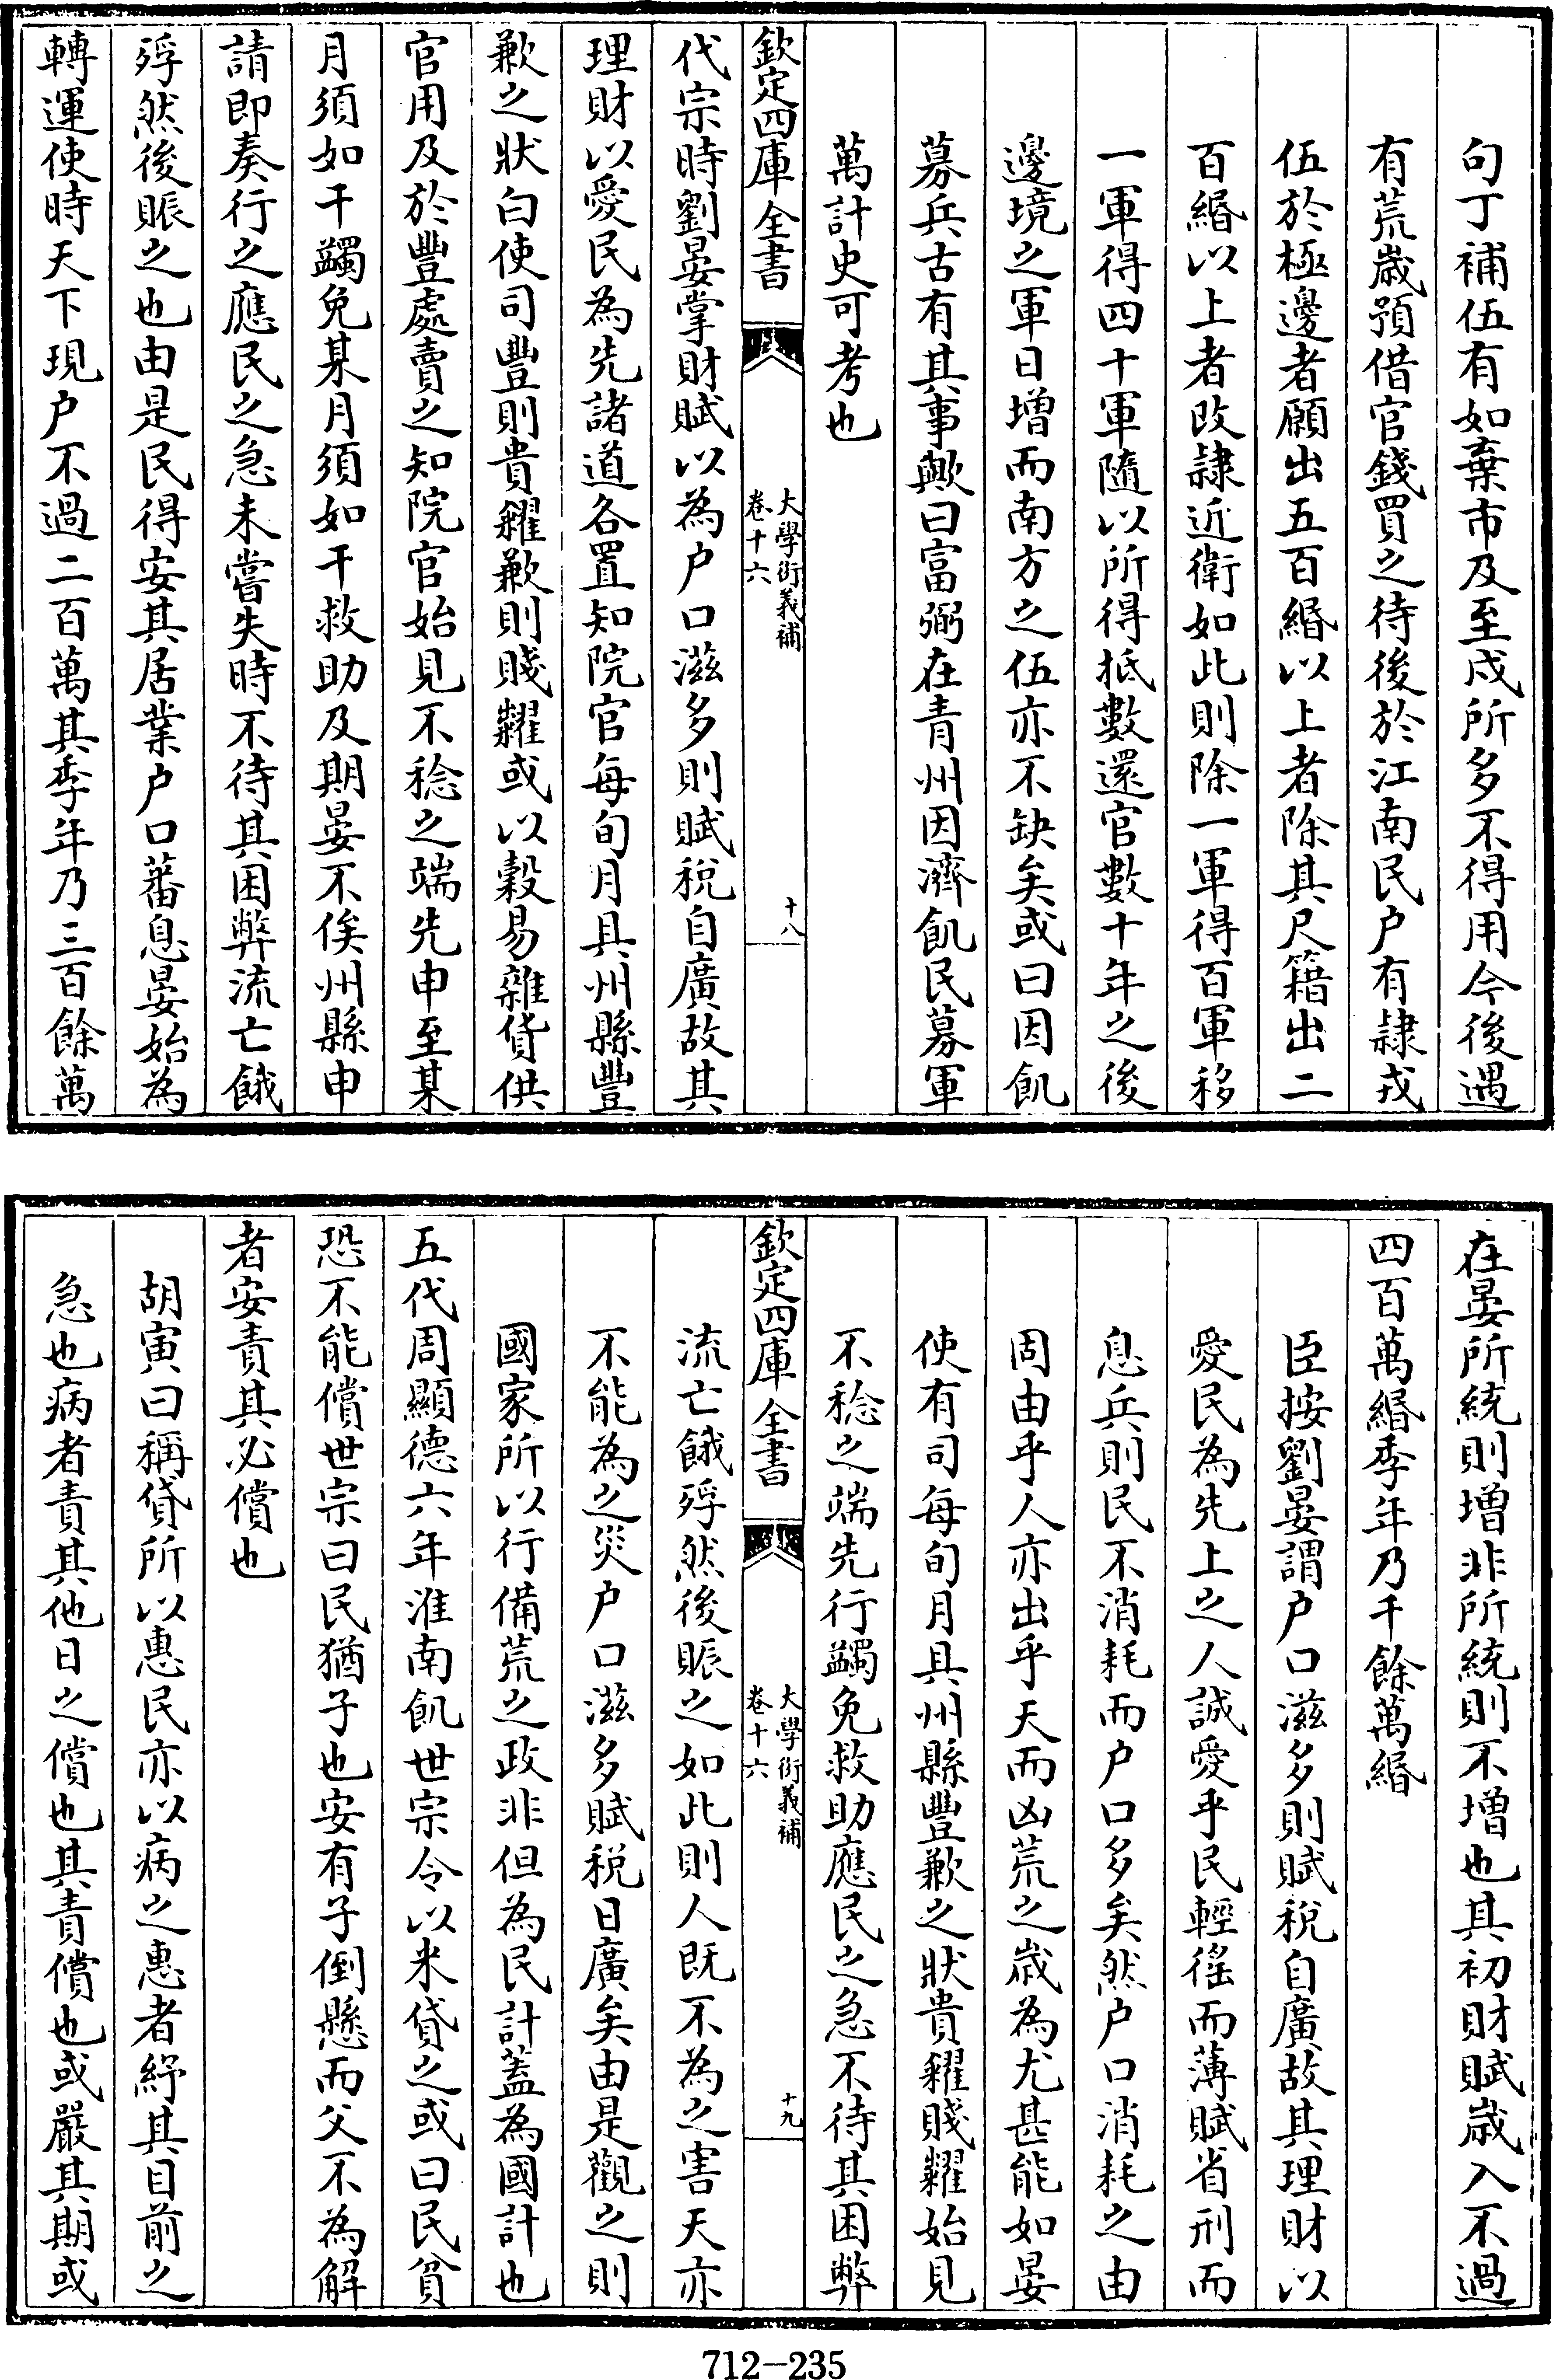 句丁補伍有如棄市及至戍所多不得用今後遇
有荒歲預借官錢買之待後於江南民户有隷戎
伍於極邊者願出五百緡以上者除其尺籍出二
百緡以上者改隷近衛如此則除一軍得百軍移
一軍得四十軍隨以所得抵數還官數十年之後
邊境之軍日增而南方之伍亦不缺矣或曰因飢
募兵古有其事歟曰富弼在青州因濟飢民募軍
萬計史可考也
欽定四庫全書
大學衍義補
卷十六
十八
代宗時劉晏掌財賦以為户口滋多則賦稅自廣故其
理財以愛民為先諸道各置知院官每旬月具州縣豐
歉之狀白使司豐則貴糴歉則賤糶或以穀易雜貨供
官用及於豐處賣之知院官始見不稔之端先申至某
月須如干蠲免某月須如干救助及期晏不俟州縣申
請即奏行之應民之急未嘗失時不待其困弊流亡餓
殍然後賑之也由是民得安其居業户口蕃息晏始為
轉運使時天下現户不過二百萬其季年乃三百餘萬
在晏所統則增非所統則不增也其初財賦歲入不過
四百萬緡季年乃千餘萬緡
臣按劉晏謂户口滋多則賦稅自廣故其理財以
愛民為先上之人誠愛乎民輕徭而薄賦省刑而
息兵則民不消耗而户口多矣然户口消耗之由
固由乎人亦出乎天而凶荒之歲為尤甚能如晏
使有司每旬月具州縣豐歉之狀貴糴賤糶始見
不稔之端先行蠲免救助應民之急不待其困弊
欽定四庫全書
大學衍義補
卷十六
十九
流亡餓殍然後賑之如此則人既不為之害天亦
不能為之災户口滋多賦稅日廣矣由是觀之則
國家所以行備荒之政非但為民計蓋為國計也
五代周顯德六年淮南飢世宗令以米貸之或曰民貧
恐不能償世宗曰民猶子也安有子倒懸而父不為解
者安責其必償也
胡寅曰稱貸所以惠民亦以病之惠者紓其目前之
急也病者責其他日之償也其責償也或嚴其期或
712-235